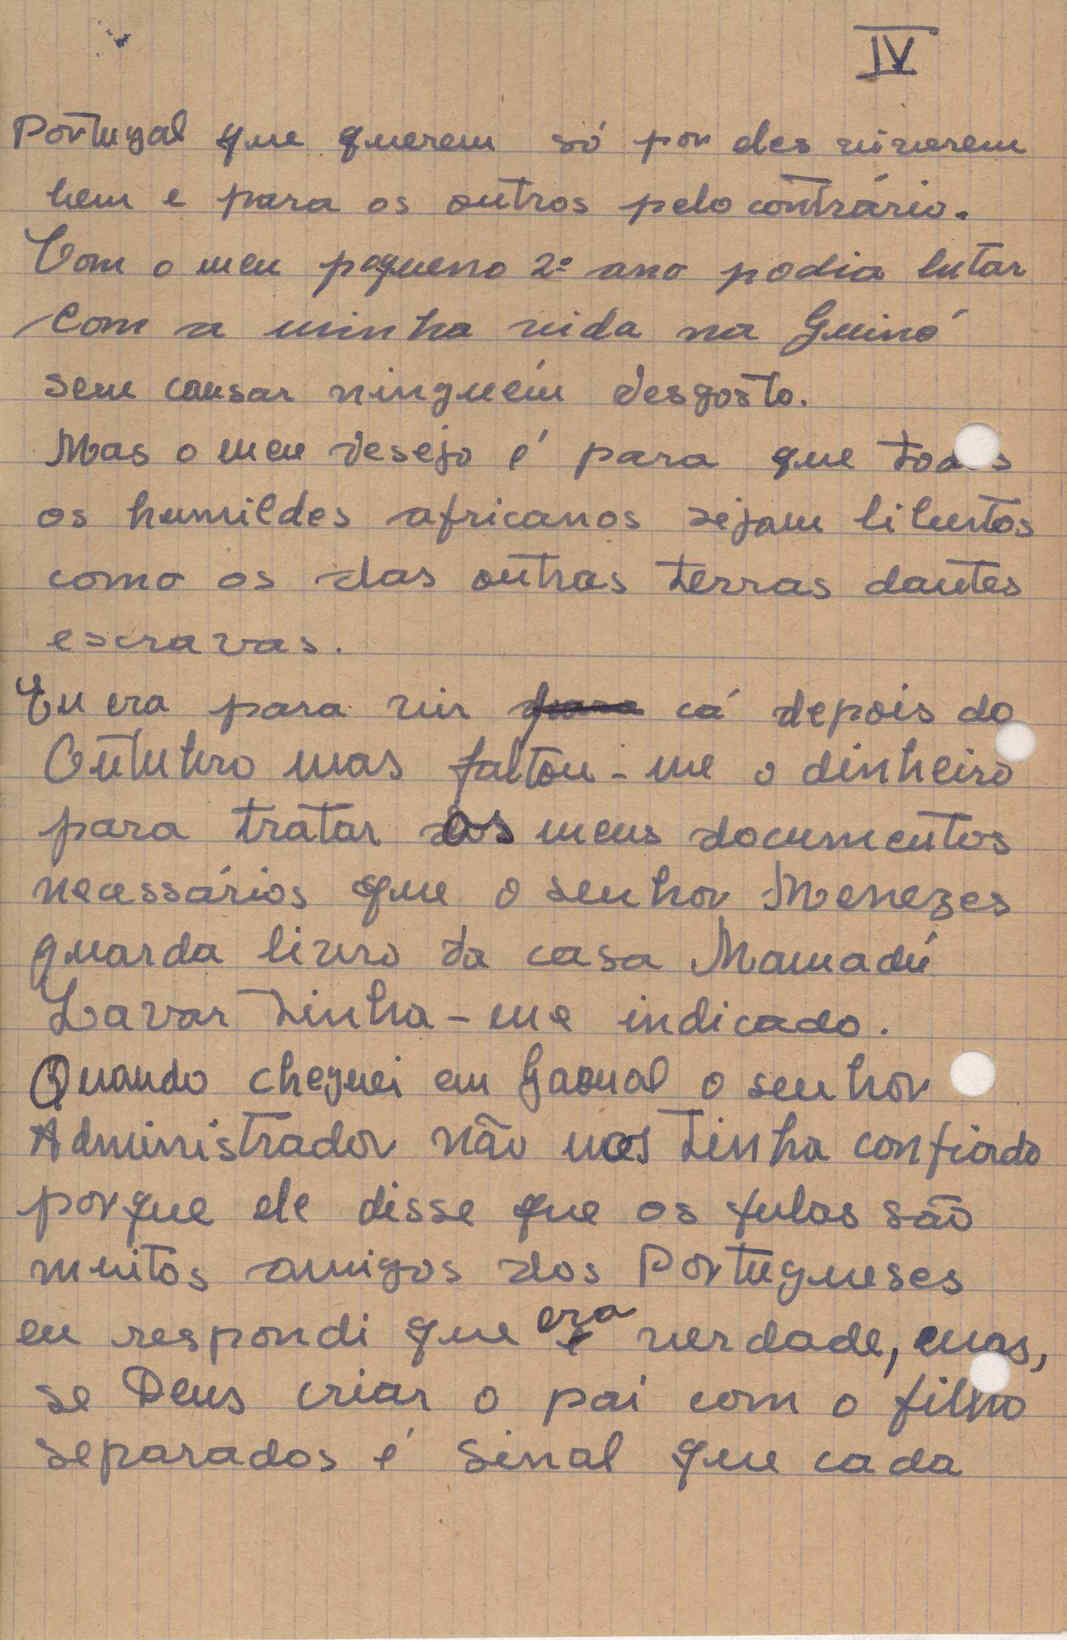 IV
Portugal que querem só por eles viverem
bem e para os outros pelo contrário.
Com o meu pequeno 2º ano podia lutar
com a minha vida na Guiné
sem causar ninguém desgosto.
Mas o meu desejo é para que todos
os humildes africanos sejam libertos
como os das outras terras dantes
escravas.
Eu era para vir para cá depois do
Outubro mas faltou-me o dinheiro
para tratar dos meus documentos
necessários que o senhor Menezes
guarda livro da casa Mamadú
Lavar tinha-me indicado.
Quando cheguei em Gaoual o senhor
Administrador não nos tinha confiado
porque ele disse que os fulas são
muitos amigos dos Portugueses
eu respondi que era verdade, mas,
se Deus criar o pai com o filho
separados é sinal que cada